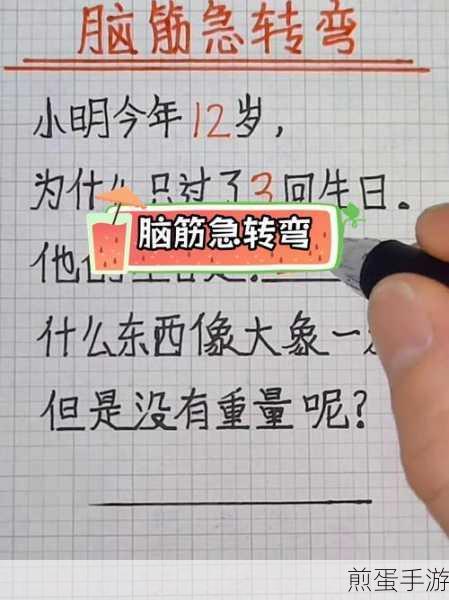 脑筋急转弯
小明今年12岁，
为什么只过了3回生日。
脑筋急转弯
他
什么东西像大象一
但是没有重量呢？
煎蛋手游